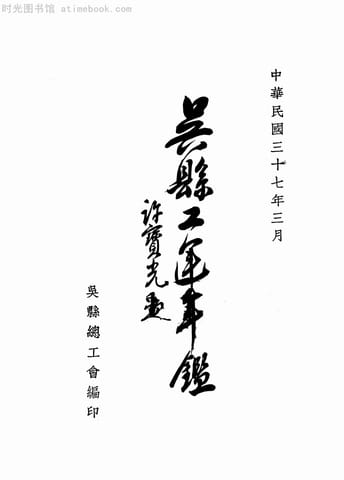 时光图书馆 atimebook.com
中華民國三十七年三月
吳縣工運年鑑
許寶光題
吳縣總工會編印